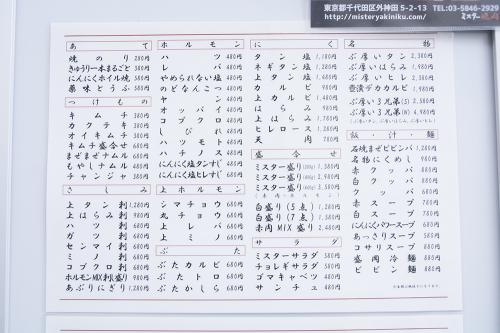 東京都千代田区外神田 5-2-13 TEL:03-5846-2929
https://misteryakiniku.com/
あて
焼のり 280円
きゅうり一本まるごと 380円
にんにくホイル焼 380円
薬味とうふ 580円
つけもの
キムチ 380円
カクテキ 380円
オイキムチ 380円
キムチ盛合せ 680円
まぜまぜナムル 680円
もやしナムル 380円
チャンジャ 380円
さしみ
上タン刺 1,280円
上はらみ刺 980円
ハツ刺 680円
ガツ刺 680円
センマイ刺 680円
ミノ刺 680円
コブクロ刺 680円
ホルモンMIX刺し盛り 980円
あぶりにぎり 1,280円
ホルモン
ハツ 480円
レバ 480円
やめられない塩 480円
のどなんこつ 480円
ヤン 480円
オッパイ 480円
コブクロ 480円
しびれ 480円
ハツモト 480円
ハチノス 480円
にんにく塩タンすじ 480円
にんにく塩ヒレすじ 680円
上ホルモン
シマチョウ 680円
丸チョウ 680円
上レバ 680円
上ミノ 680円
ぶた
ぶたカルビ 680円
ぶたトロ 680円
ぶたかしら 680円
にく
タン塩 1,180円
ネギタン塩 1,280円
上タン塩 1,680円
カルビ 980円
上カルビ 1,480円
はらみ 980円
上はらみ 1,780円
ヒレロース 1,280円
天肉 780円
盛合せ
ミスター盛り 1,980円
ミスター盛り 2,980円
ミスター盛り 3,580円
白盛り(5点) 1,280円
白盛り(7点) 1,580円
赤肉MIX盛り 2,480円
サラダ
ミスターサラダ 580円
チョレギサラダ 580円
ゴマキャベツ 580円
サンチュ 480円
名物
ぶ厚いタン 2,380円
ぶ厚いはらみ 1,980円
ぶ厚いヒレ 2,380円
壺漬デカカルビ 1,980円
ぶ厚い3兄弟(S) 2,580円
ぶ厚い3兄弟(W) 4,980円
飯・汁・麺
石焼まぜビビンバ 1,280円
名物にくめし 980円
赤クッパ 880円
白クッパ 880円
クッパ 680円
赤スープ 780円
白スープ 780円
にんにくパワースープ 680円
あっさりスープ 580円
コサリスープ 580円
盛岡冷麺 880円
ビビン麺 880円